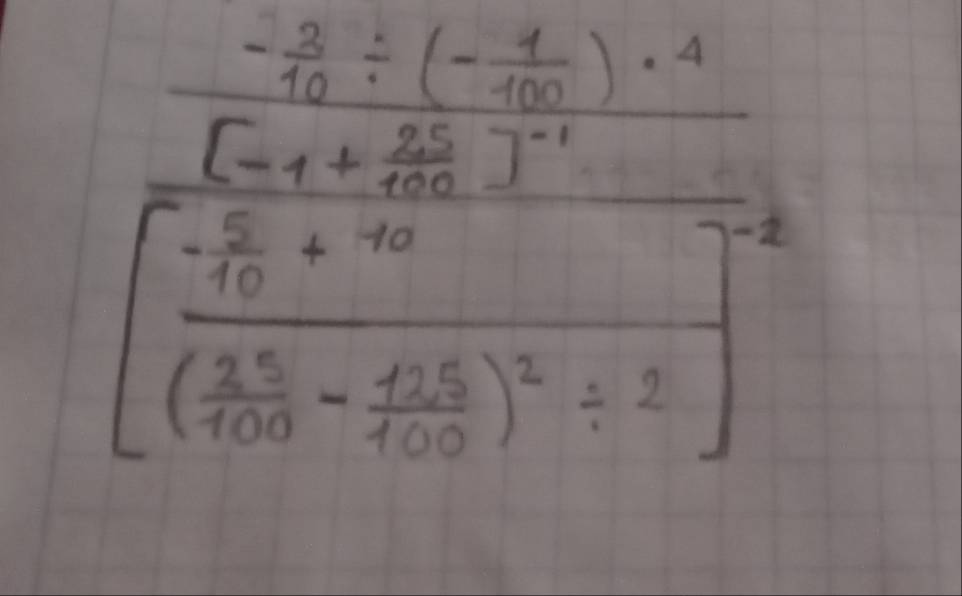 -2/10 ÷ (-1/100) · 4
[-1 + 25/100]^-1
[-5/10 + 10
(25/100 - 125/100)^2 ÷ 2]^-2